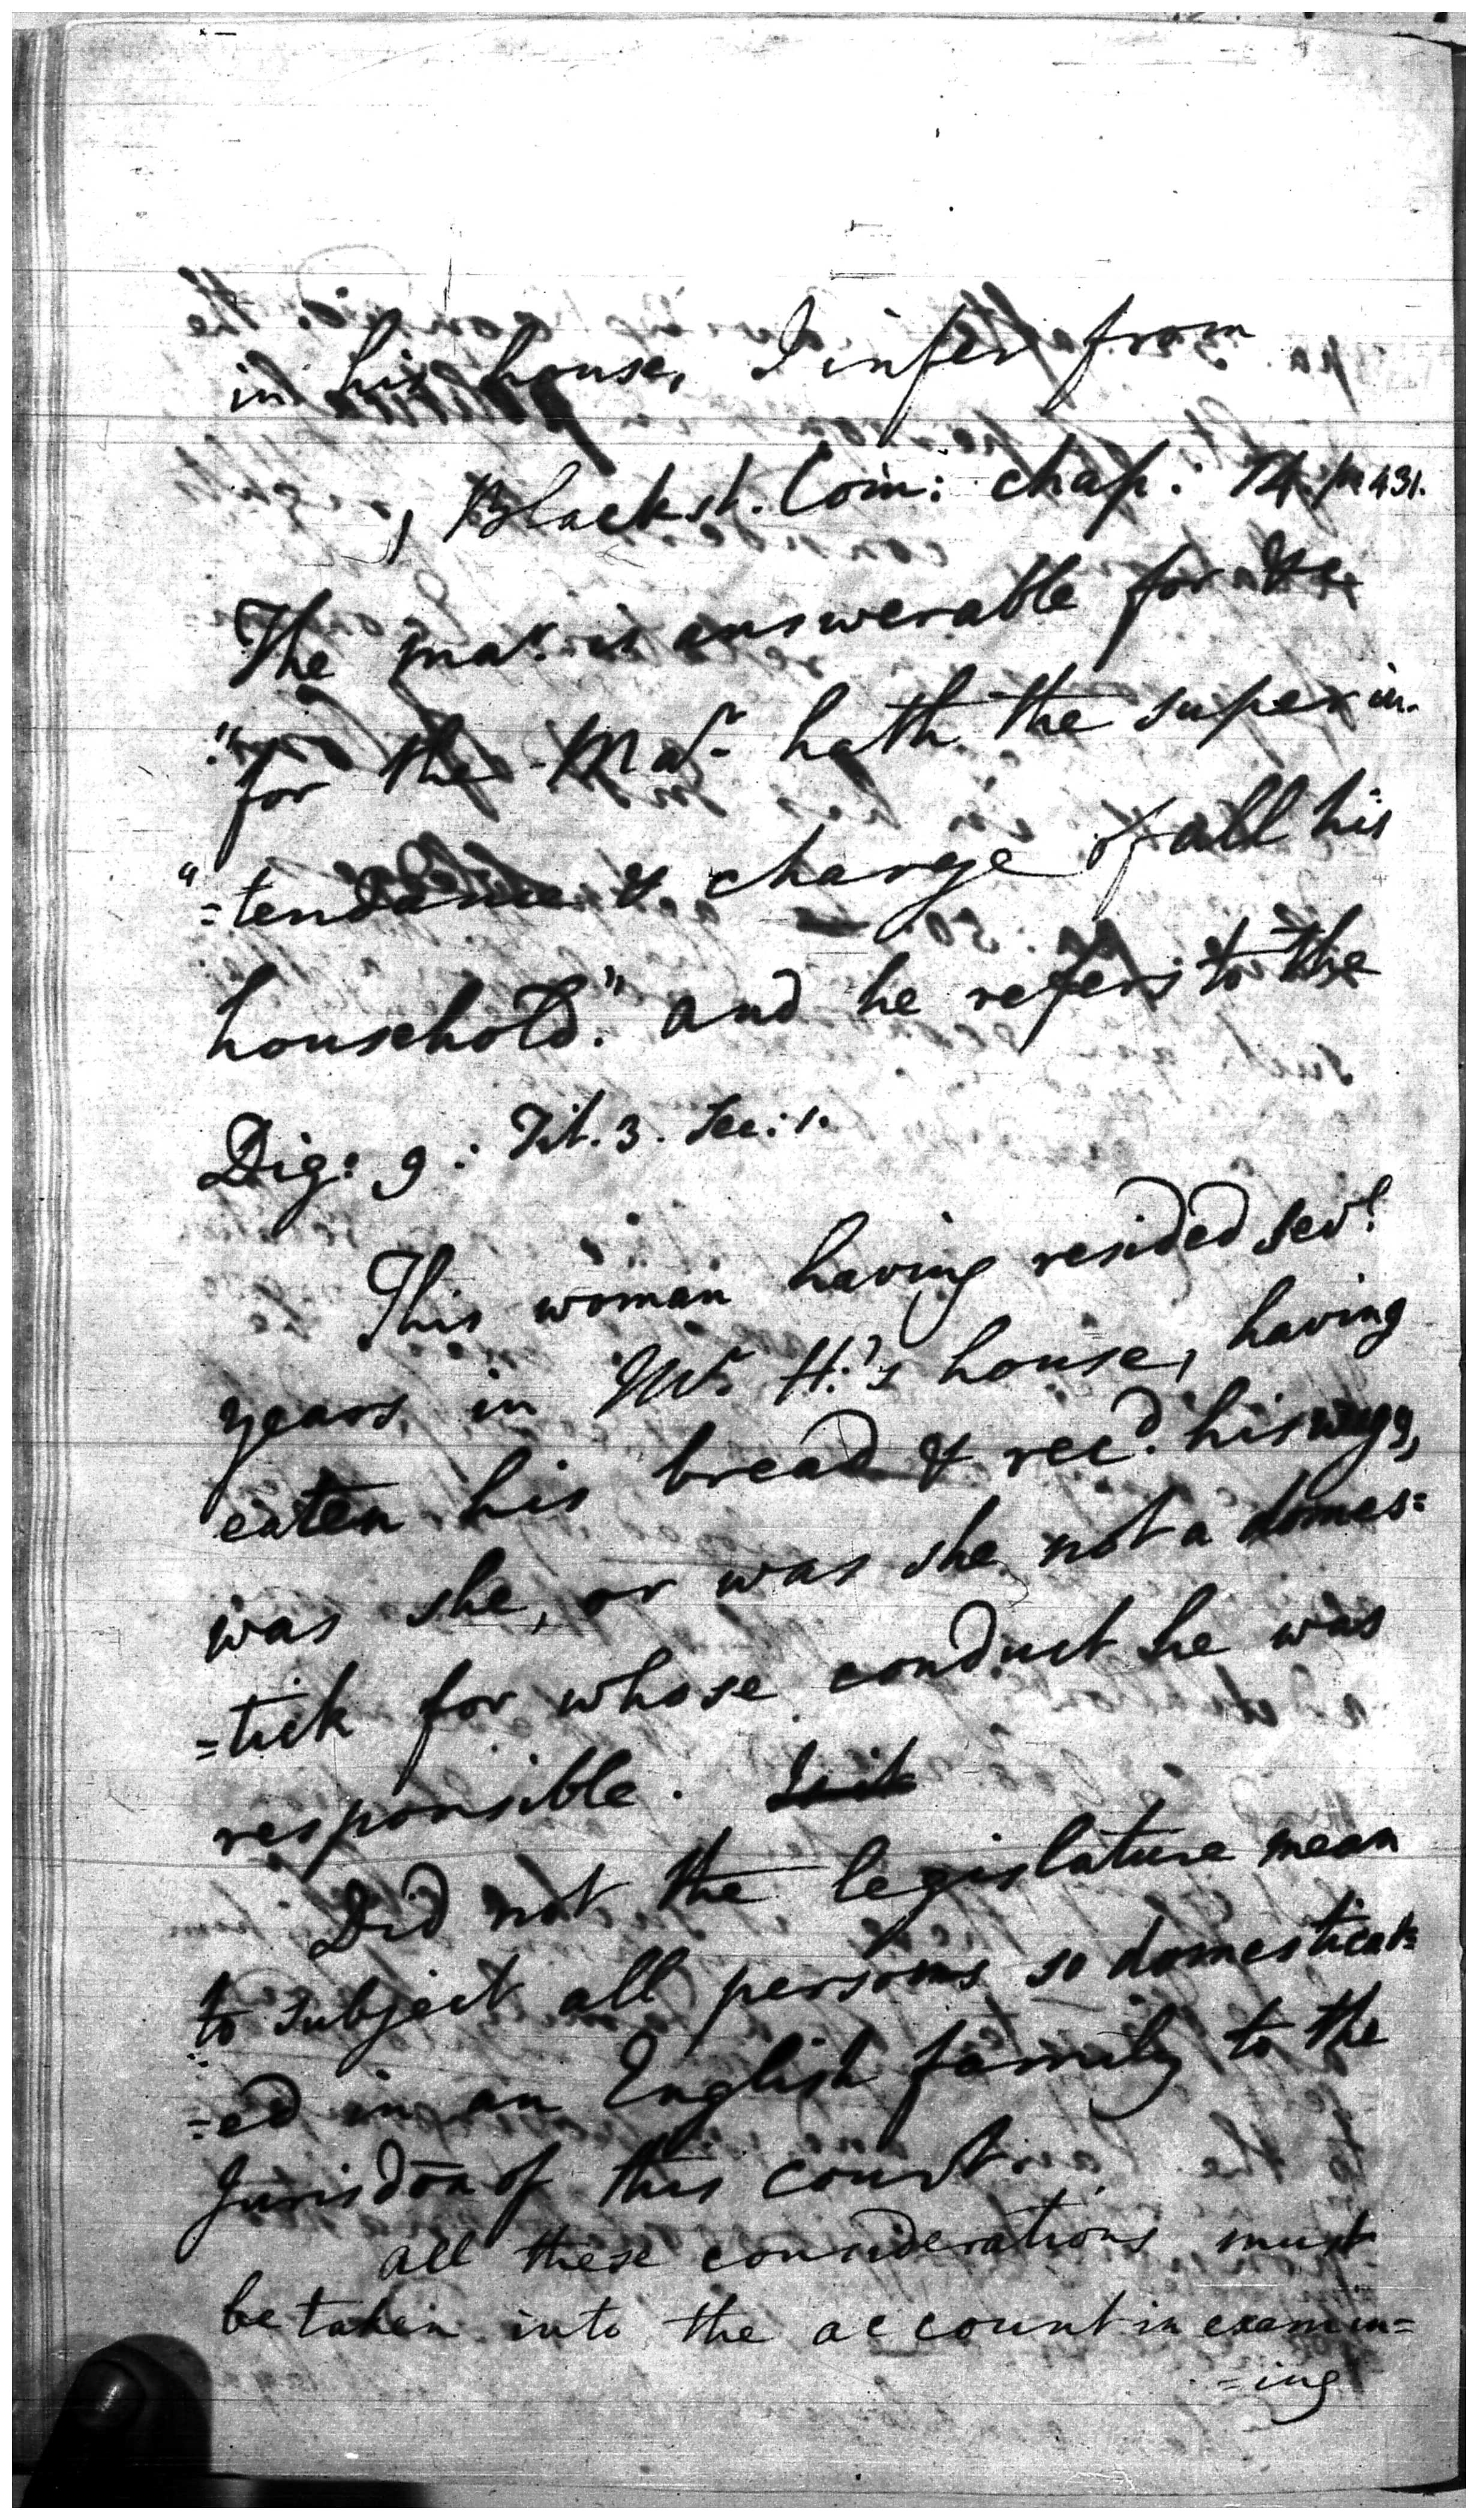 in his house, I infer from
1 Blackst. Com: chap: 14. pa 431.
The mar. is answerable for &c.
"for the Mar. hath the superin-
"=tendance & charge of all his
household." and he refers to the
Dig: 9: Tit. 3. Sec: 1.
This woman having resided sevl.
years in Mr. H.'s house, having
eaten his bread & recd. his wages,
was she, or was she not a domes=
=tick for whose conduct he was
responsible.
Did not the legislature mean
to subject all persons so domesticat=
=ed in an English family to the
Jurisdon of this court.
all these considerations must
be taken into the account in examin=
=ing